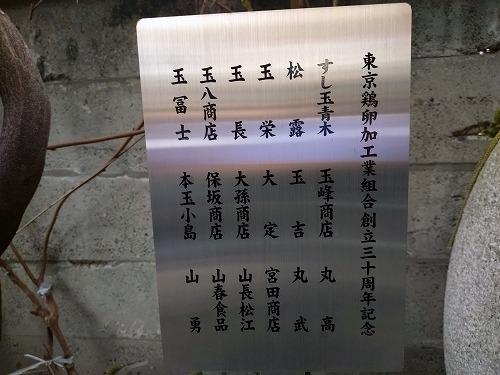 東京鶏卵加工業組合創立三十周年記念
すし玉青木 玉峰商店 丸高
松露 玉吉 丸武
玉栄 大定 宮田商店
玉長 大孫商店 山長松江
玉八商店 保坂商店 山春食品
玉冨士 本玉小島 山勇